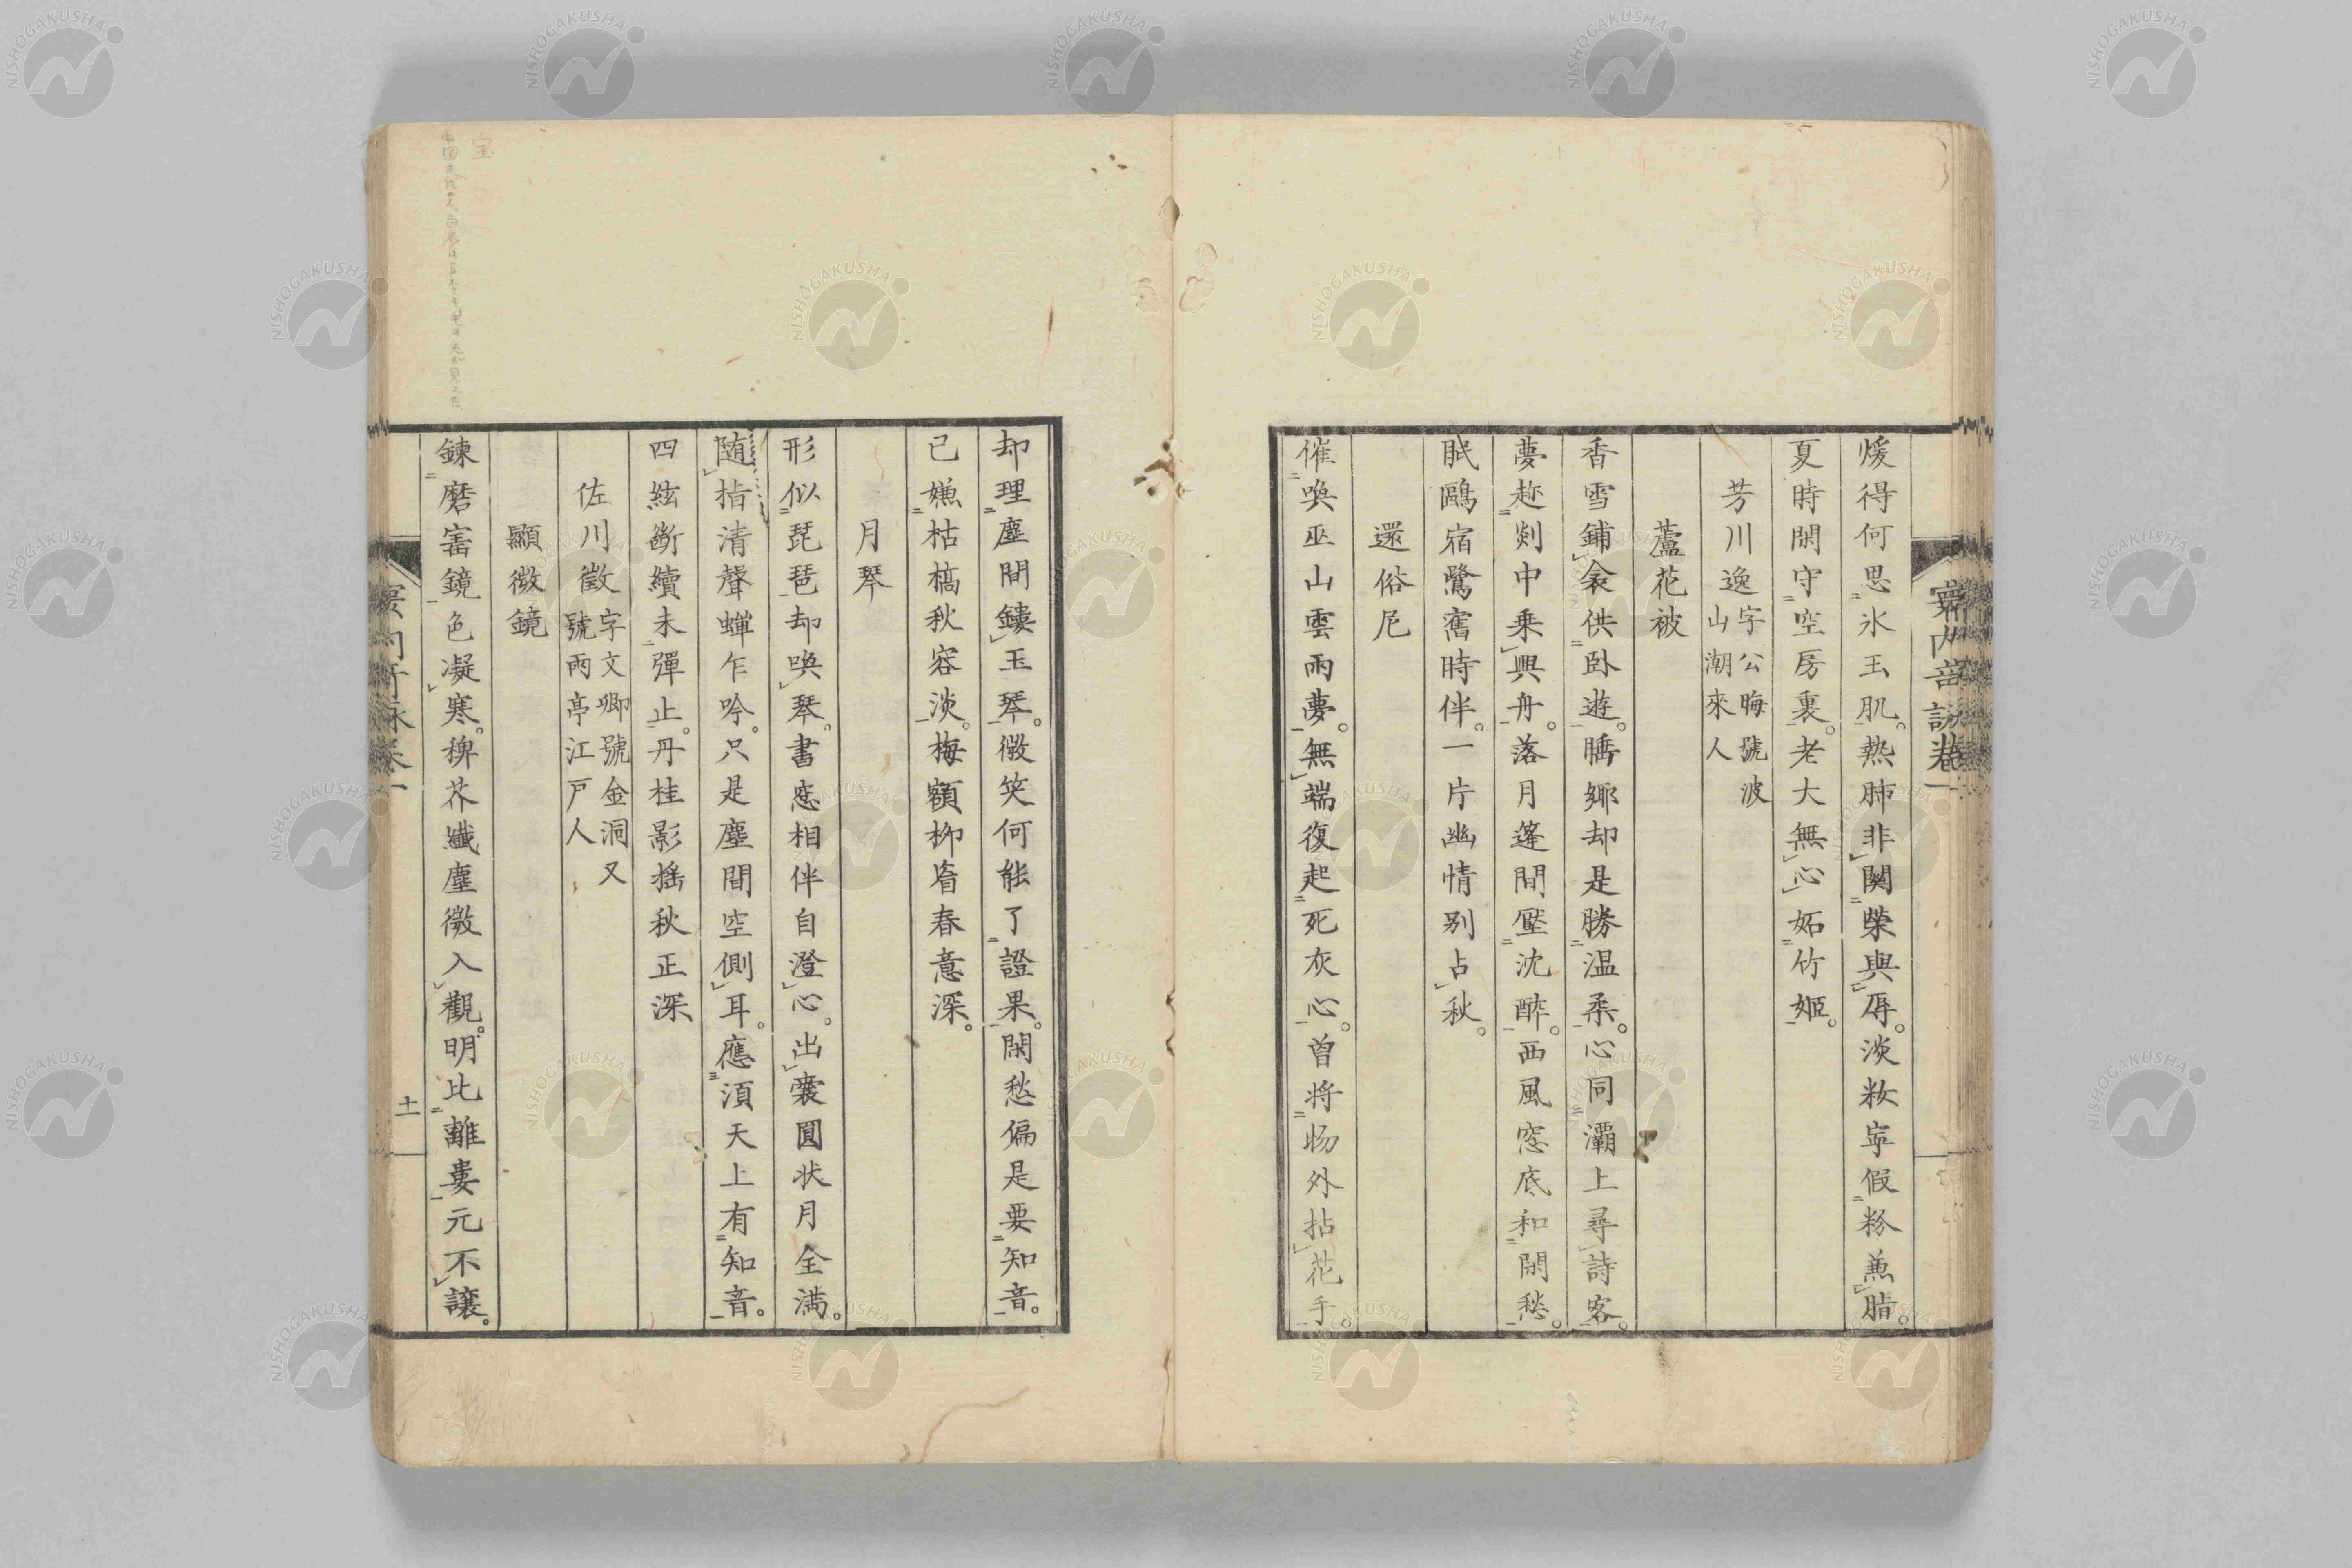 煖得何思氷玉肌。熱肺非關榮與辱。淡粧寧假粉兼脂。
夏時閑守空房裏。老大無心妬竹姬。
芳川逸字公晦號波山潮來人
蘆花被
香雪鋪衾供臥遊。睡鄉却是勝温柔。心同灞上尋詩客。
夢趁剡中乗興舟。落月蓬間壓沈醉。西風窓底和閑愁。
眠鷗宿鷺舊時伴。一片幽情别占秋。
還俗尼
催喚巫山雲雨夢。無端復起死灰心。曾将物外拈花手。
却理塵間鏤玉琴。微笑何能了證果。閑愁偏是要知音。
已嫌枯槁秋容淡。梅額柳眉春意深。
月琴
形似琵琶却喚琴。書窓相伴自澄心。出囊圓状月全満。
随指清聲蟬乍吟。只是塵間空側耳。應須天上有知音。
四絃斷續未彈止。丹桂影揺秋正深
佐川徵字文卿號金洞又號兩亭江戸人
顯微鏡
鍊磨寶鏡色凝寒。稗芥纖塵微入觀。明比離婁元不讓。
詠卷一
十一
NISHOGAKUSHA